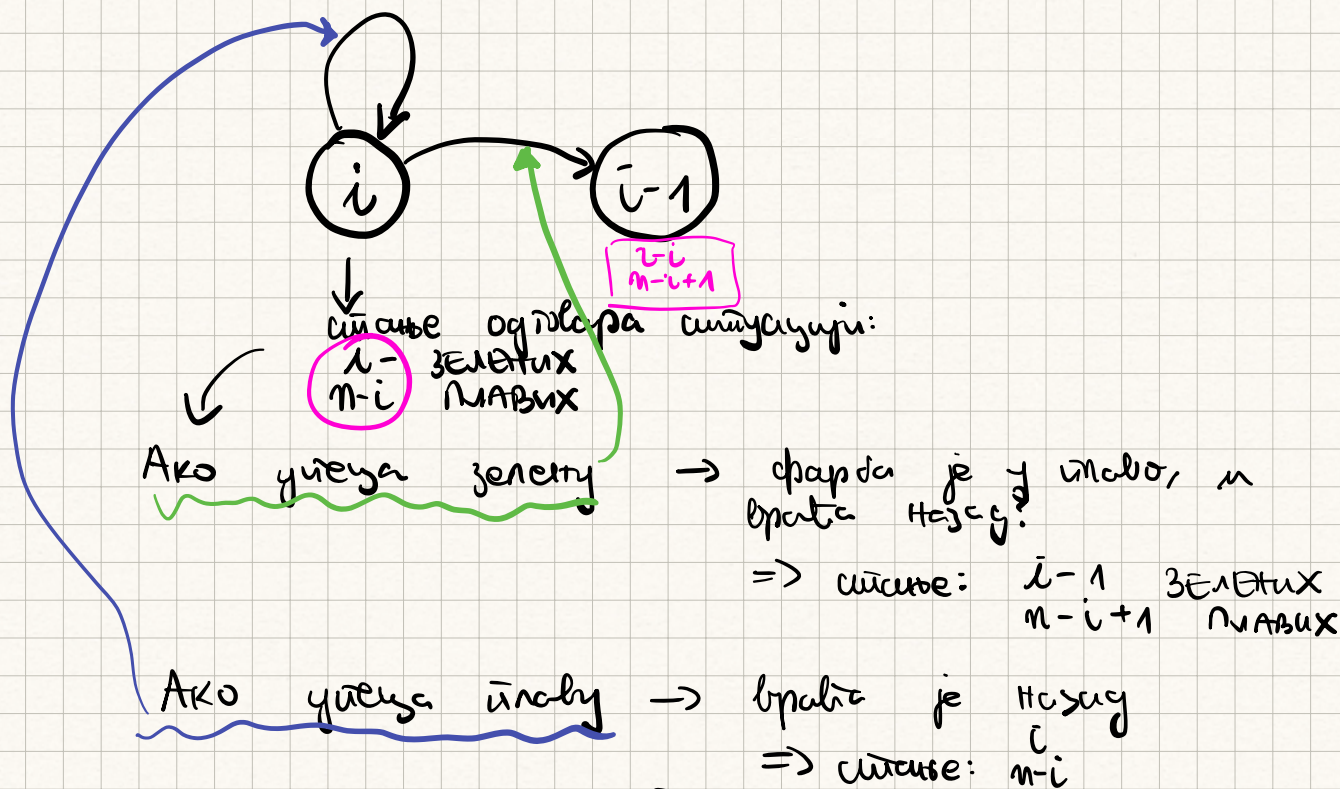 i
i-1
i-i
n-i+1
стање одговара ситуацији:
i - ЗЕЛЕНИХ
n-i ПЛАВИХ
Ако упеца зелену → фарба је у плаво, и
враћа назад?
=> стање: i-1 ЗЕЛЕНИХ
n-i+1 ПЛАВИХ
Ако упеца плаву → враћа је назад
=> стање: i
n-i